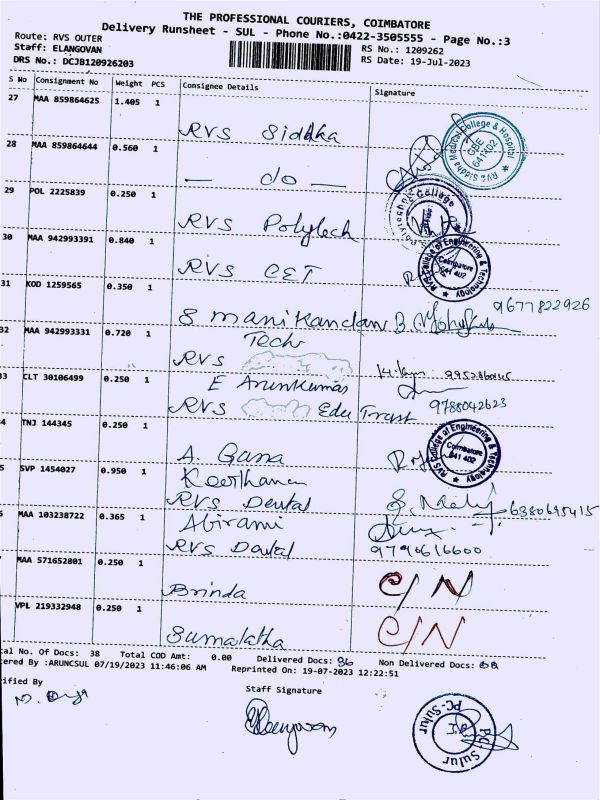 THE PROFESSIONAL COURIERS, COIMBATORE
Delivery Runsheet - SUL - Phone No.:0422-3505555 - Page No.:3
Route: RVS OUTER
RS No.: 1209262
Staff: ELANGOVAN
RS Date: 19-Jul-2023
DRS No.: DCJB120926203
S No Consignment No Weight PCS Consignee Details Signature
27 MAA 859864625 1.405 1
RVS Siddha
RVS Siddha Medical College & Hospital
CBE 641402
28 MAA 859864644 0.560 1
— do —
29 POL 2225839 0.250 1
RVS Polytech
30 MAA 942993391 0.840 1
RVS CET
RVS College of Engineering & Technology
Coimbatore 641 402
31 KOD 1259565 0.350 1
S manikandan 9677822926
32 MAA 942993331 0.720 1
Tech
RVS
33 CLT 30106499 0.250 1
E Arunkumar
RVS Edu Trust 9788042623
34 TNJ 144345 0.250 1
A. Gana
RVS College of Engineering & Technology
Coimbatore 641 402
35 SVP 1454027 0.950 1
Keerthana
RVS Dental 6380695415
36 MAA 103238722 0.365 1
Abirami
RVS Dental 9790616600
MAA 571652801 0.250 1
Brinda C/N
VPL 219332948 0.250 1
Sumalatha C/N
tal No. Of Docs: 38 Total COD Amt: 0.00 Delivered Docs: 36 Non Delivered Docs: 02
tered By :ARUNCSUL 07/19/2023 11:46:06 AM Reprinted On: 19-07-2023 12:22:51
rified By
Staff Signature
PC-Sulur